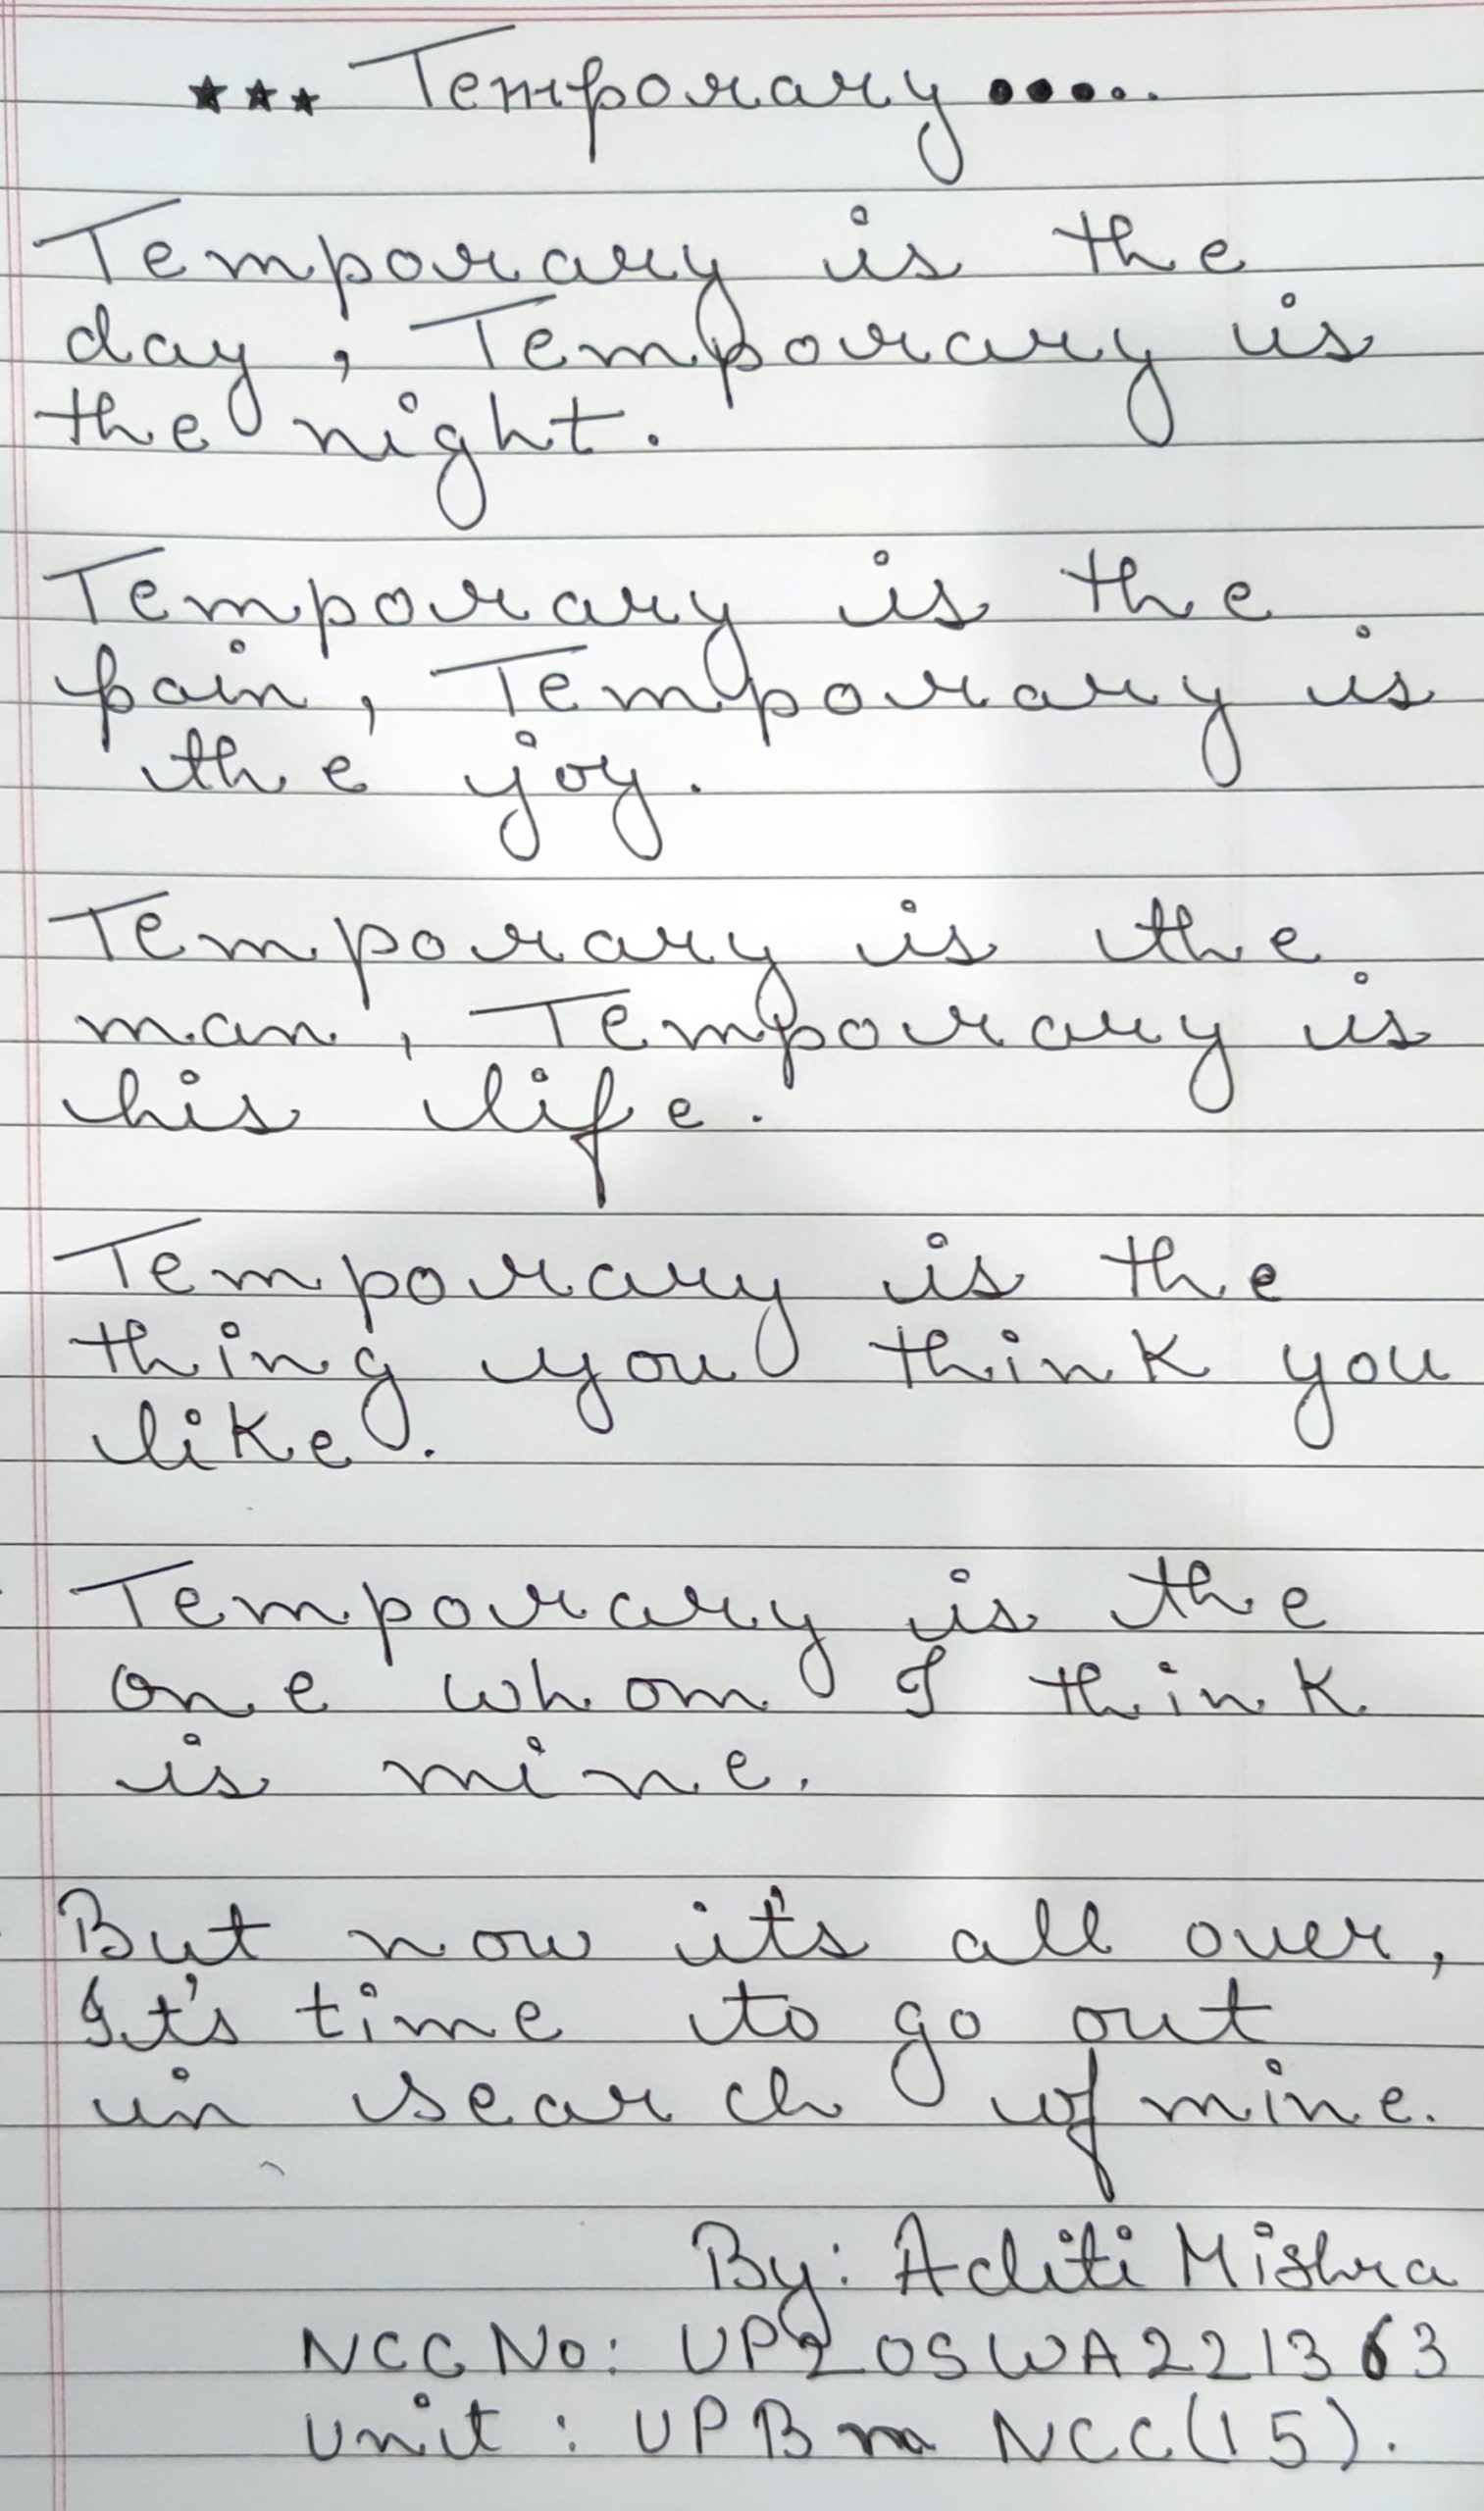 ★★★ Temporary.....
Temporary is the
day, Temporary is
the night.
Temporary is the
pain, Temporary is
the joy.
Temporary is the
man, Temporary is
his life.
Temporary is the
thing you think you
like.
Temporary is the
one whom I think
is mine.
But now it's all over,
It's time to go out
in search of mine.
By: Aditi Mishra
NCC No: UP20SWA221363
Unit : UP Bn NCC(15).